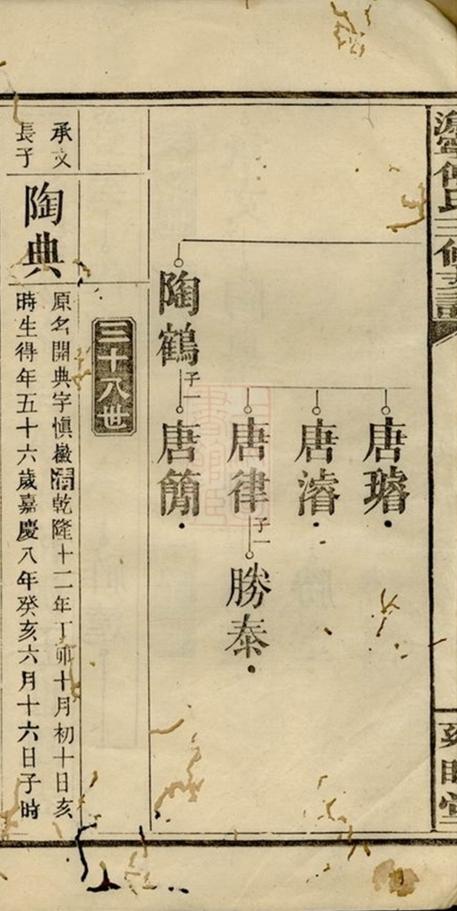 氏三修支譜
堂
唐璿
唐濬
唐律
子一
勝泰
陶鶴
子一
唐簡
三十八世
承文
長子
陶典
原名開典字慎徽清乾隆十二年丁卯十月初十日亥
時生得年五十六歲嘉慶八年癸亥六月十六日子時